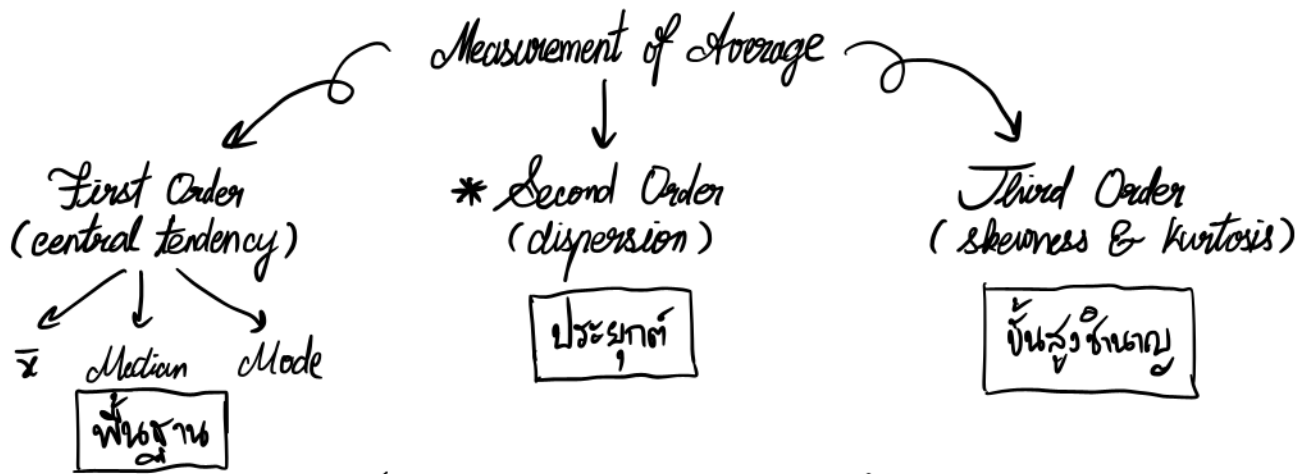 Measurement of Average
First Order
(central tendency)
x̄ Median Mode
พื้นฐาน
* Second Order
(dispersion)
ประยุกต์
Third Order
(skewness & Kurtosis)
ขั้นสูงชำนาญ